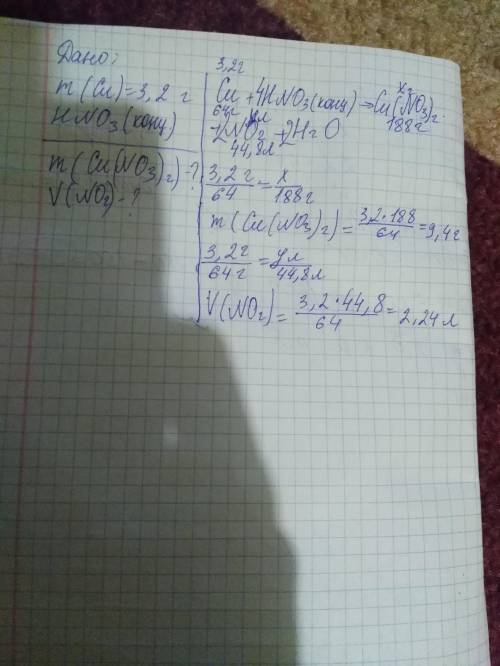 Дано:
m(Cu)=3,2 г
HNO3(конц)
m(Cu(NO3)2)-?
V(NO2)-?
3,2г xг
Cu+4HNO3(конц)→Cu(NO3)2+
64г yл 188г
+2NO2+2H2O
44,8л
3,2г/64=x/188г
m(Cu(NO3)2)=3,2·188/64=9,4г
3,2г/64г=yл/44,8л
V(NO2)=3,2·44,8/64=2,24л